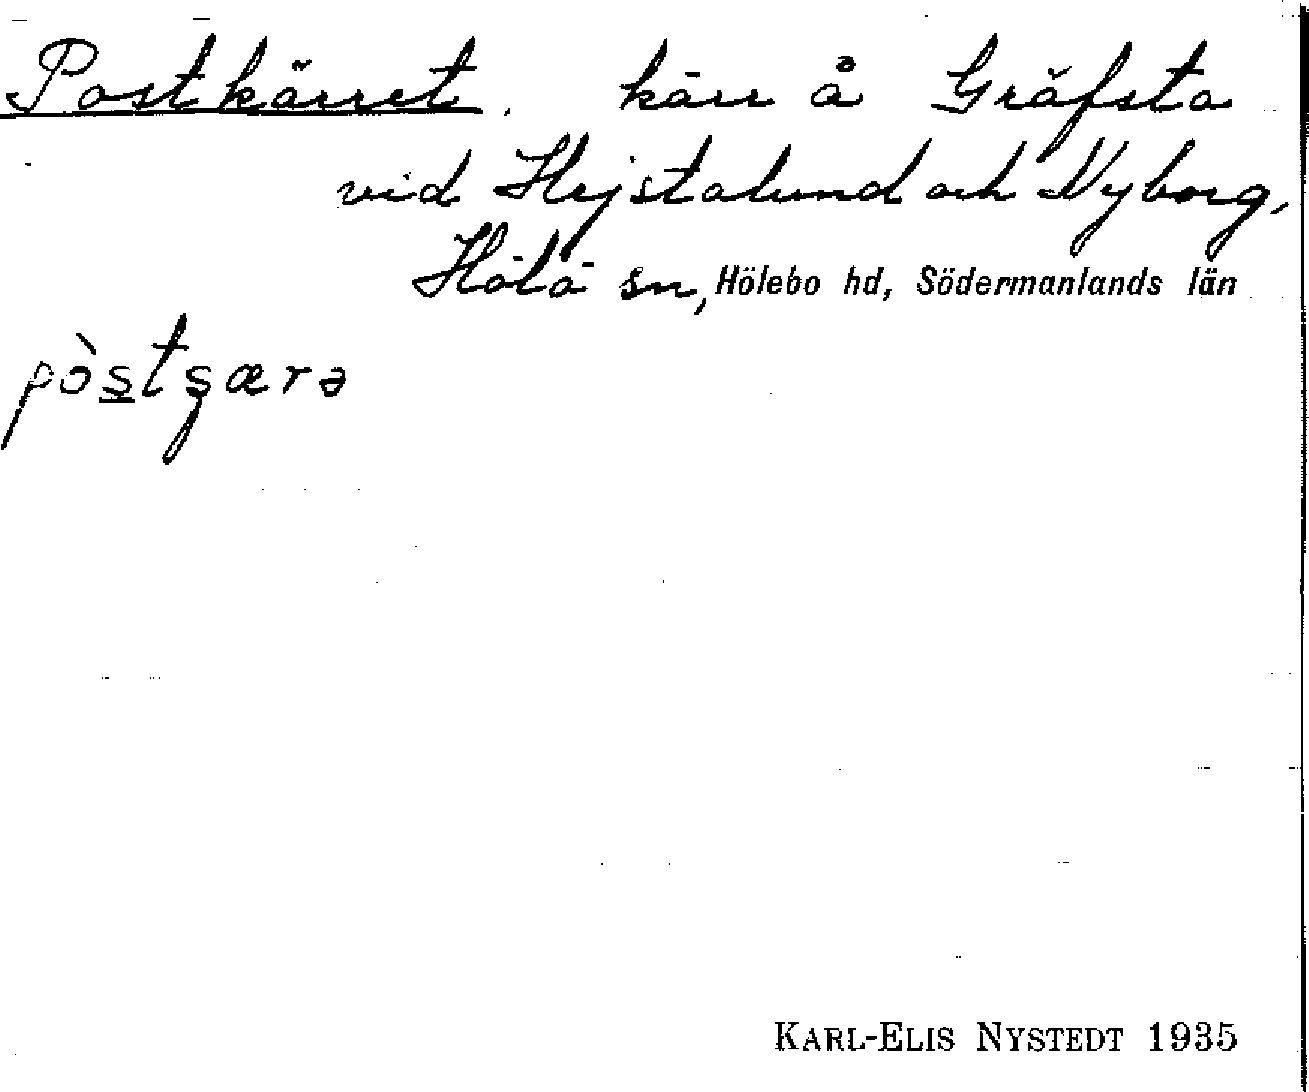 Postkärret, kärr å Gräfsta
vid Hejstalund och Nyborg,
Hölö sn, Hölebo hd, Södermanlands län
pòstȿærə
KARL-ELIS NYSTEDT 1935